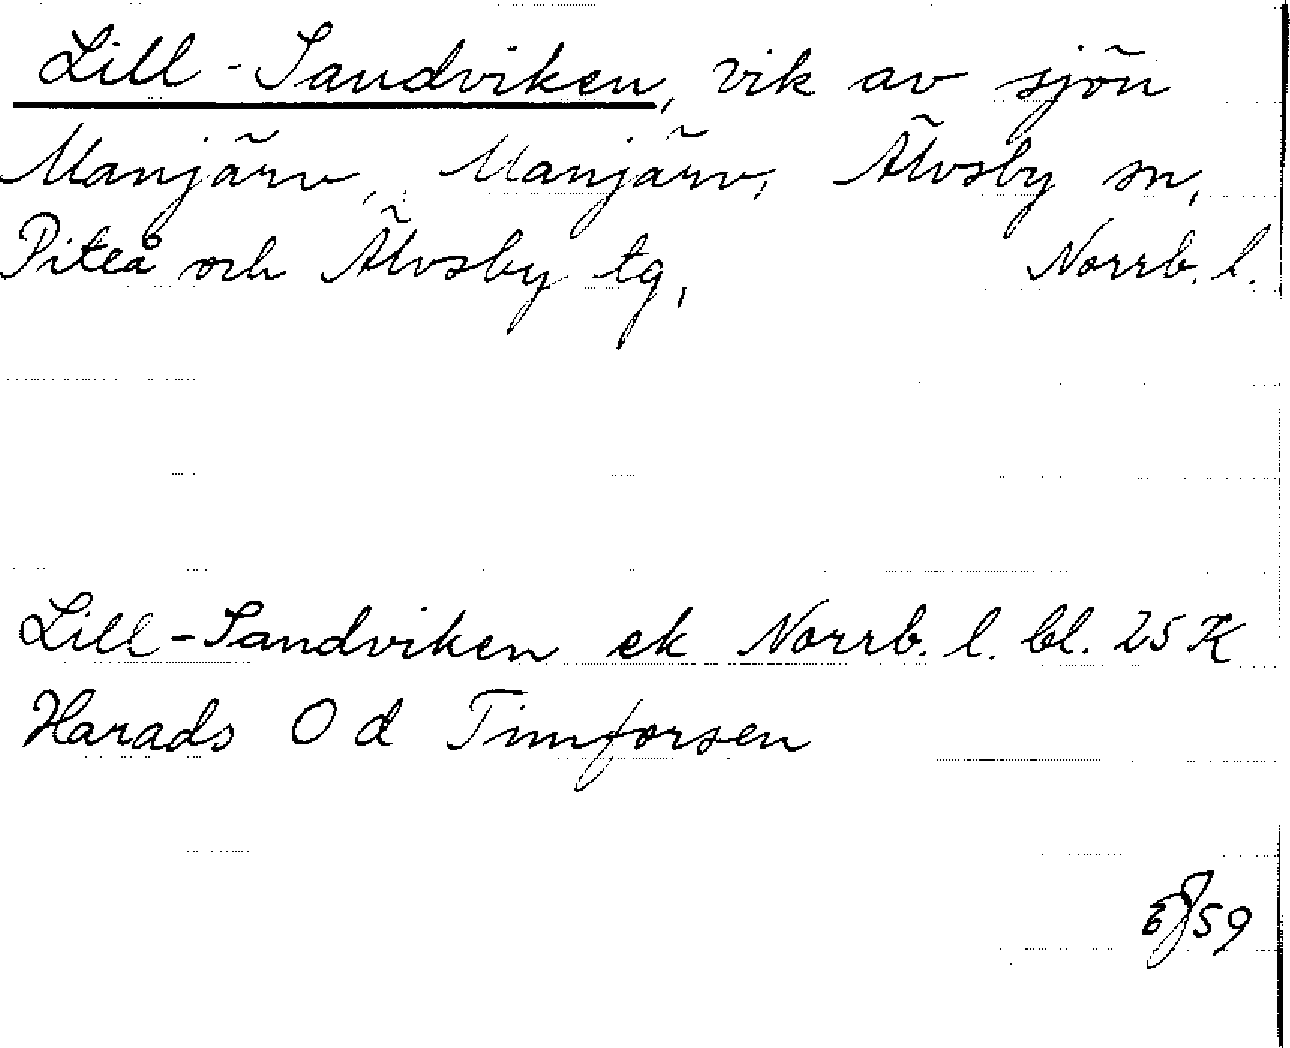 Lill-Sandviken, vik av sjön
Manjärv, Manjärv, Älvsby sn,
Piteå och Älvsby tg, Norrb. l.
Lill-Sandviken ek Norrb. l. bl. 25 K
Harads O d Timforsen
59